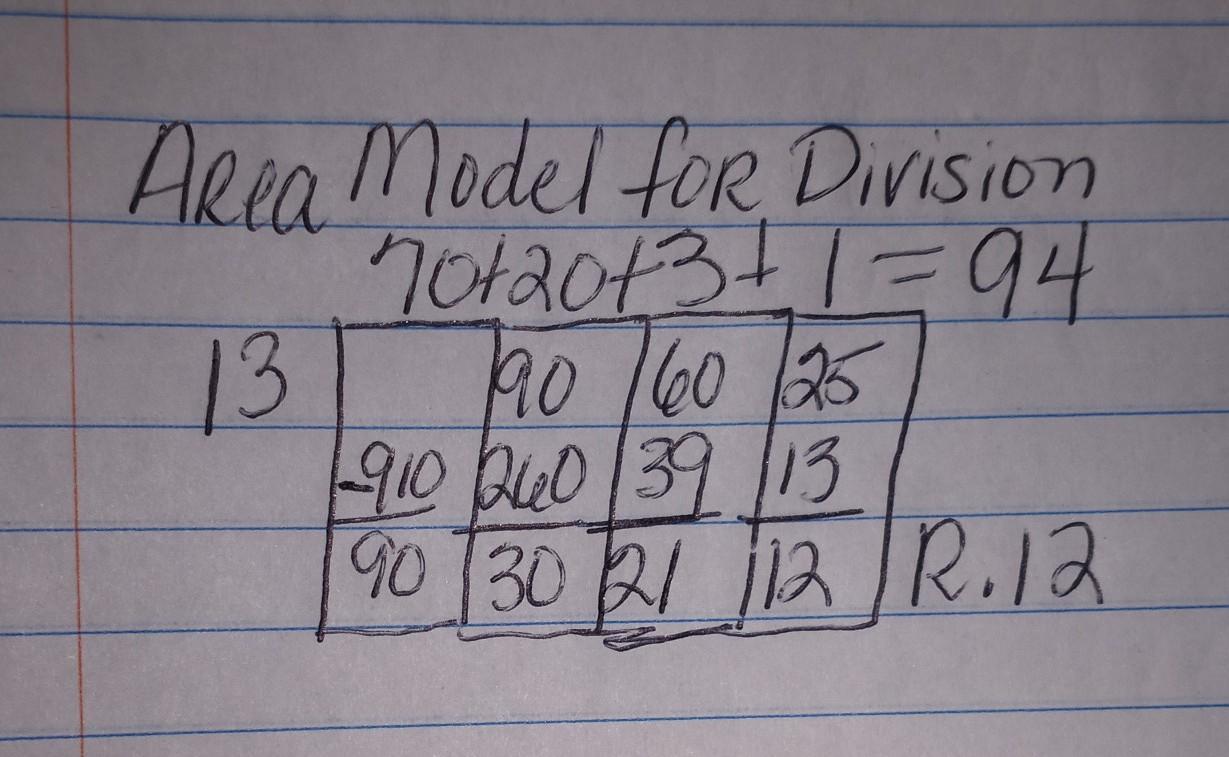 Area Model for Division
70+20+3+1=94
13 90 60 25
-910 260 39 13
90 30 21 12 R.12